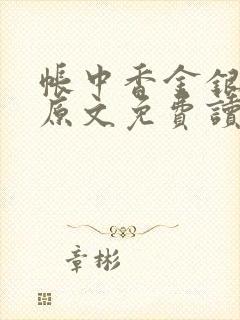 帳中香金銀
原文免費讀
章彬